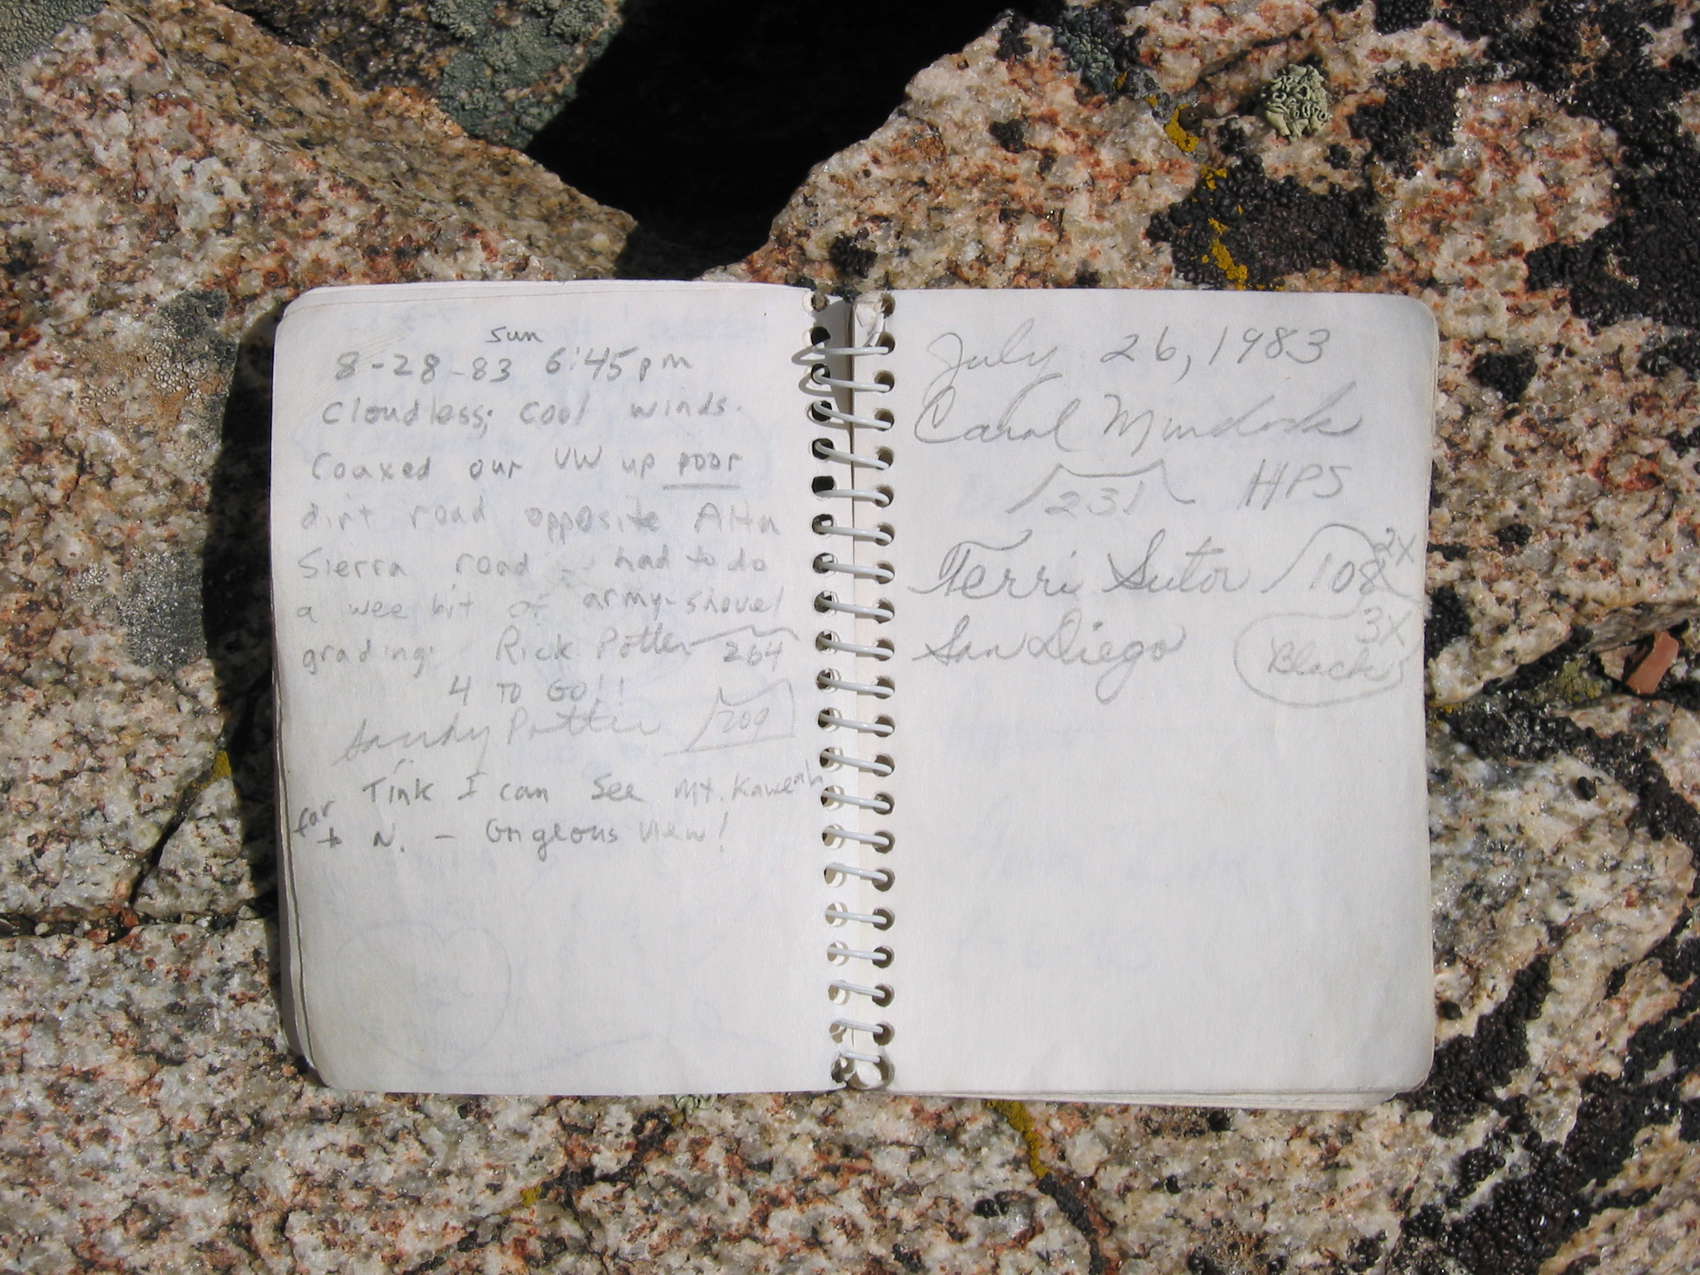 sun
8-28-83 6:45pm
Cloudless; cool winds.
Coaxed our VW up poor
dirt road opposite Alta
Sierra road - had to do
a wee bit of army-shovel
grading. Rick Potter 264
4 TO GO!!
Sandy Potter 209
Tink I can see Mt. Kaweah
for
+ N. - Gorgeous view!
July 26, 1983
Carol Murdock
231 HPS
Terri Sutor 108 2X
San Diego Black 3X